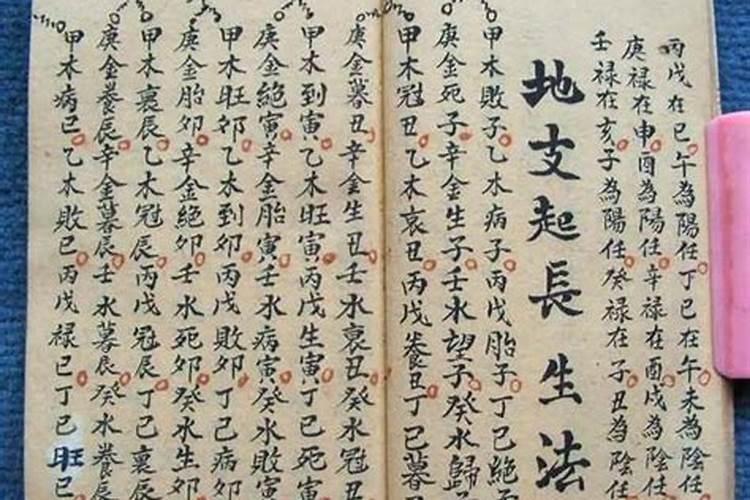 丙戊在巳午為陽任丁巳在午未為陰任
庚禄在申酉為陽任辛禄在酉戌為陰任
壬禄在亥子為陽任癸禄在子丑為陰任
地支起長生法
甲木敗子乙木病子丙戊胎子丁己絕子
庚金死子辛金生子壬水望子癸水歸子
甲木冠丑乙木哀丑丙戊養丑丁己暮丑
庚金暮丑辛金生丑壬水衰丑癸水冠丑
甲木到寅乙木旺寅丙戊生寅丁己死寅
庚金絕寅辛金胎寅壬水病寅癸水敗寅
甲木旺卯乙木到卯丙戊敗卯丁己病卯
庚金胎卯辛金絕卯壬水死卯癸水生卯
甲木衰辰乙木冠辰丙戊冠辰丁己衰辰
庚金養辰辛金暮辰壬水暮辰癸水養辰
甲木病巳乙木敗巳丙戊禄巳丁己旺巳